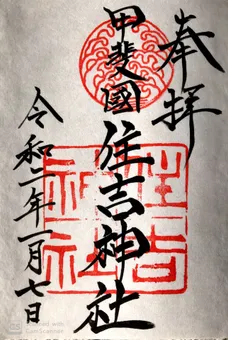 奉拝
甲斐國住吉神社
令和二年一月七日
住吉
神社